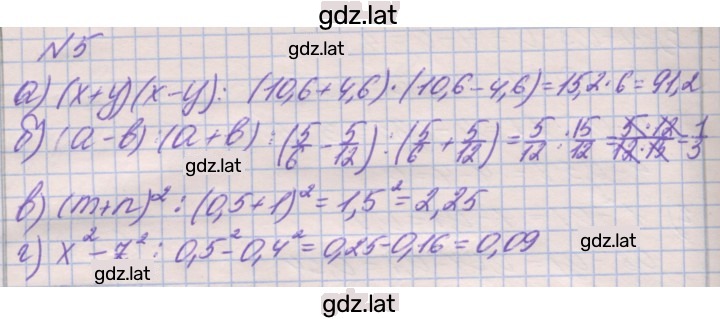 gdz.lat
N 5
gdz.lat
а) (x+y)(x-y): (10,6+4,6)·(10,6-4,6)=15,2·6=91,2
б) (a-b):(a+b): (5/6-5/12):(5/6+5/12)=5/12:15/12=5·12/12·12=1/3
в) (m+n)²: (0,5+1)²=1,5²=2,25
г) x²-z²: 0,5²-0,4²=0,25-0,16=0,09
gdz.lat
gdz.lat